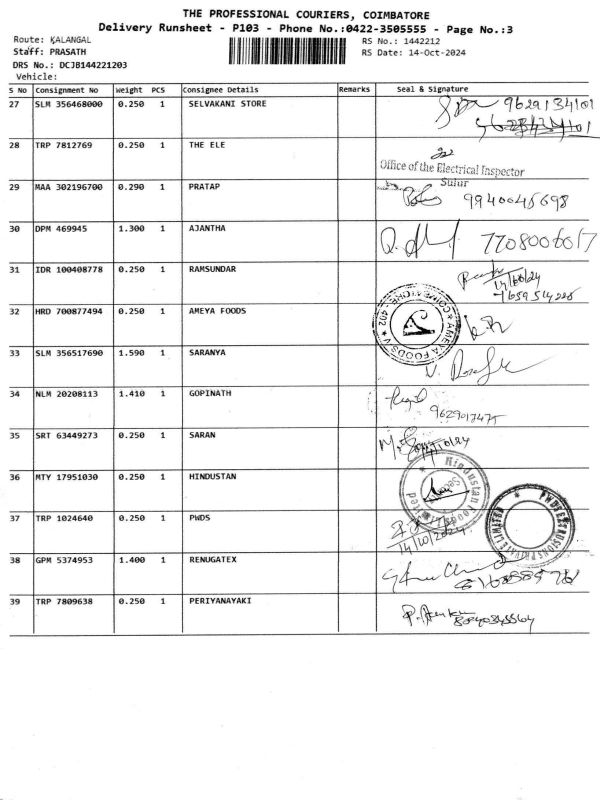 THE PROFESSIONAL COURIERS, COIMBATORE
Delivery Runsheet - P103 - Phone No.:0422-3505555 - Page No.:3
Route: KALANGAL RS No.: 1442212
Staff: PRASATH RS Date: 14-Oct-2024
DRS No.: DCJB144221203
Vehicle:
S No Consignment No Weight PCS Consignee Details Remarks Seal & Signature
27 SLM 356468000 0.250 1 SELVAKANI STORE 9629134101
28 TRP 7812769 0.250 1 THE ELE
Office of the Electrical Inspector
Sulur
29 MAA 302196700 0.290 1 PRATAP 9940045698
30 DPM 469945 1.300 1 AJANTHA 7708006017
31 IDR 100408778 0.250 1 RAMSUNDAR
32 HRD 700877494 0.250 1 AMEYA FOODS
AMEYA FOODS COIMBATORE - 402
33 SLM 356517690 1.590 1 SARANYA
34 NLM 20208113 1.410 1 GOPINATH
9629017475
35 SRT 63449273 0.250 1 SARAN
36 MTY 17951030 0.250 1 HINDUSTAN
Hindustan Foods Limited
37 TRP 1024640 0.250 1 PWDS
14/10/2024
38 GPM 5374953 1.400 1 RENUGATEX
39 TRP 7809638 0.250 1 PERIYANAYAKI